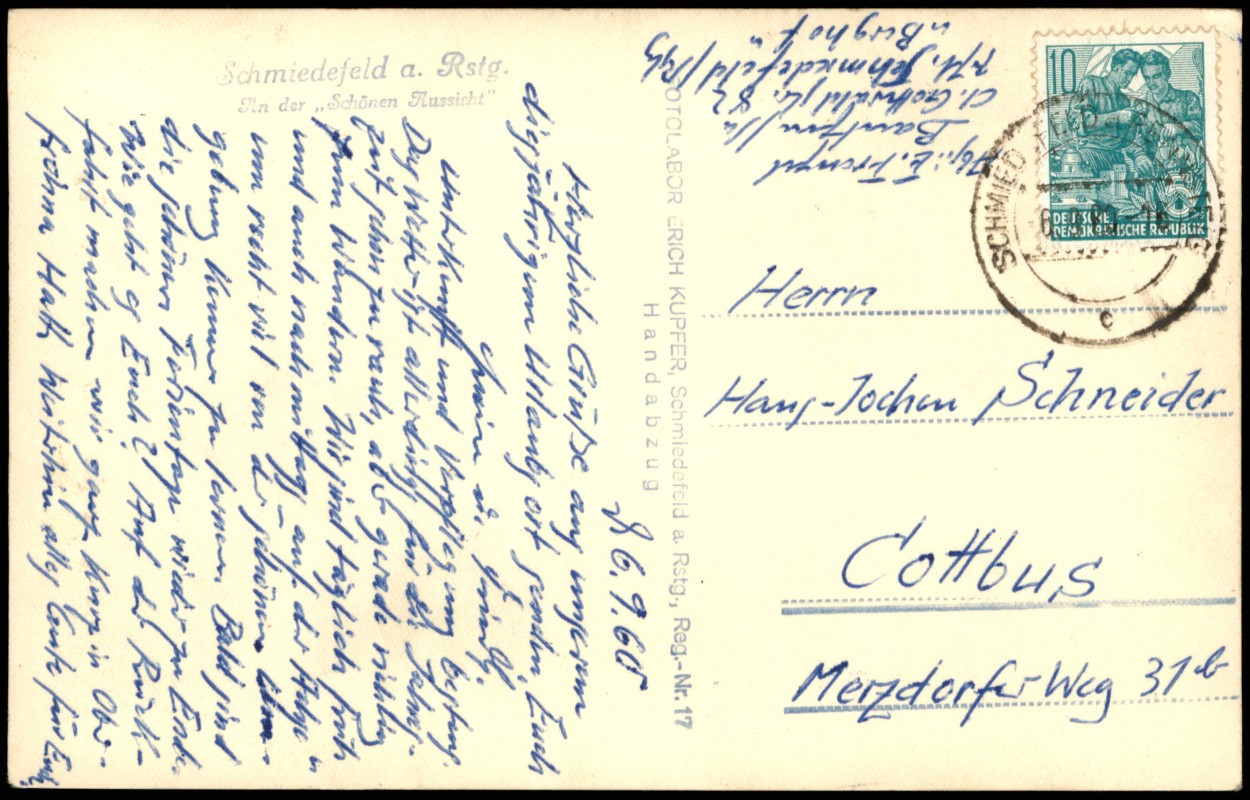 Schmiedefeld a. Rstg.
An der „Schönen Aussicht"
d. 6.9.60
Herzliche Grüße aus unserem
diesjährigen Urlaubsort senden Euch
Unterkunft und Verpflegung bestens.
Das Wetter ist allerdings für die Jahres-
zeit schon zu rauh, aber gerade richtig
zum Wandern. Wir sind täglich früh
und auch nachmittag auf der Achse
um recht viel von der schönen Um-
gebung kennen zu lernen. Bald sind
die schönen Ferientage wieder zu Ende.
Wie geht es Euch? Auf der Rück-
fahrt machen wir ganz kurz in Ober-
Weiterhin alles Gute für Euch
FOTOLABOR ERICH KUPFER, Schmiedefeld a. Rstg., Reg.-Nr. 17
Handabzug
Abs.: E. Frenzel
Bautzen
Schmiedefeld/Rstg
"Berghof"
10
DEUTSCHE
DEMOKRATISCHE REPUBLIK
SCHMIEDEFELD
c
Herrn
Hans-Jochen Schneider
Cottbus
Merzdorfer Weg 31b